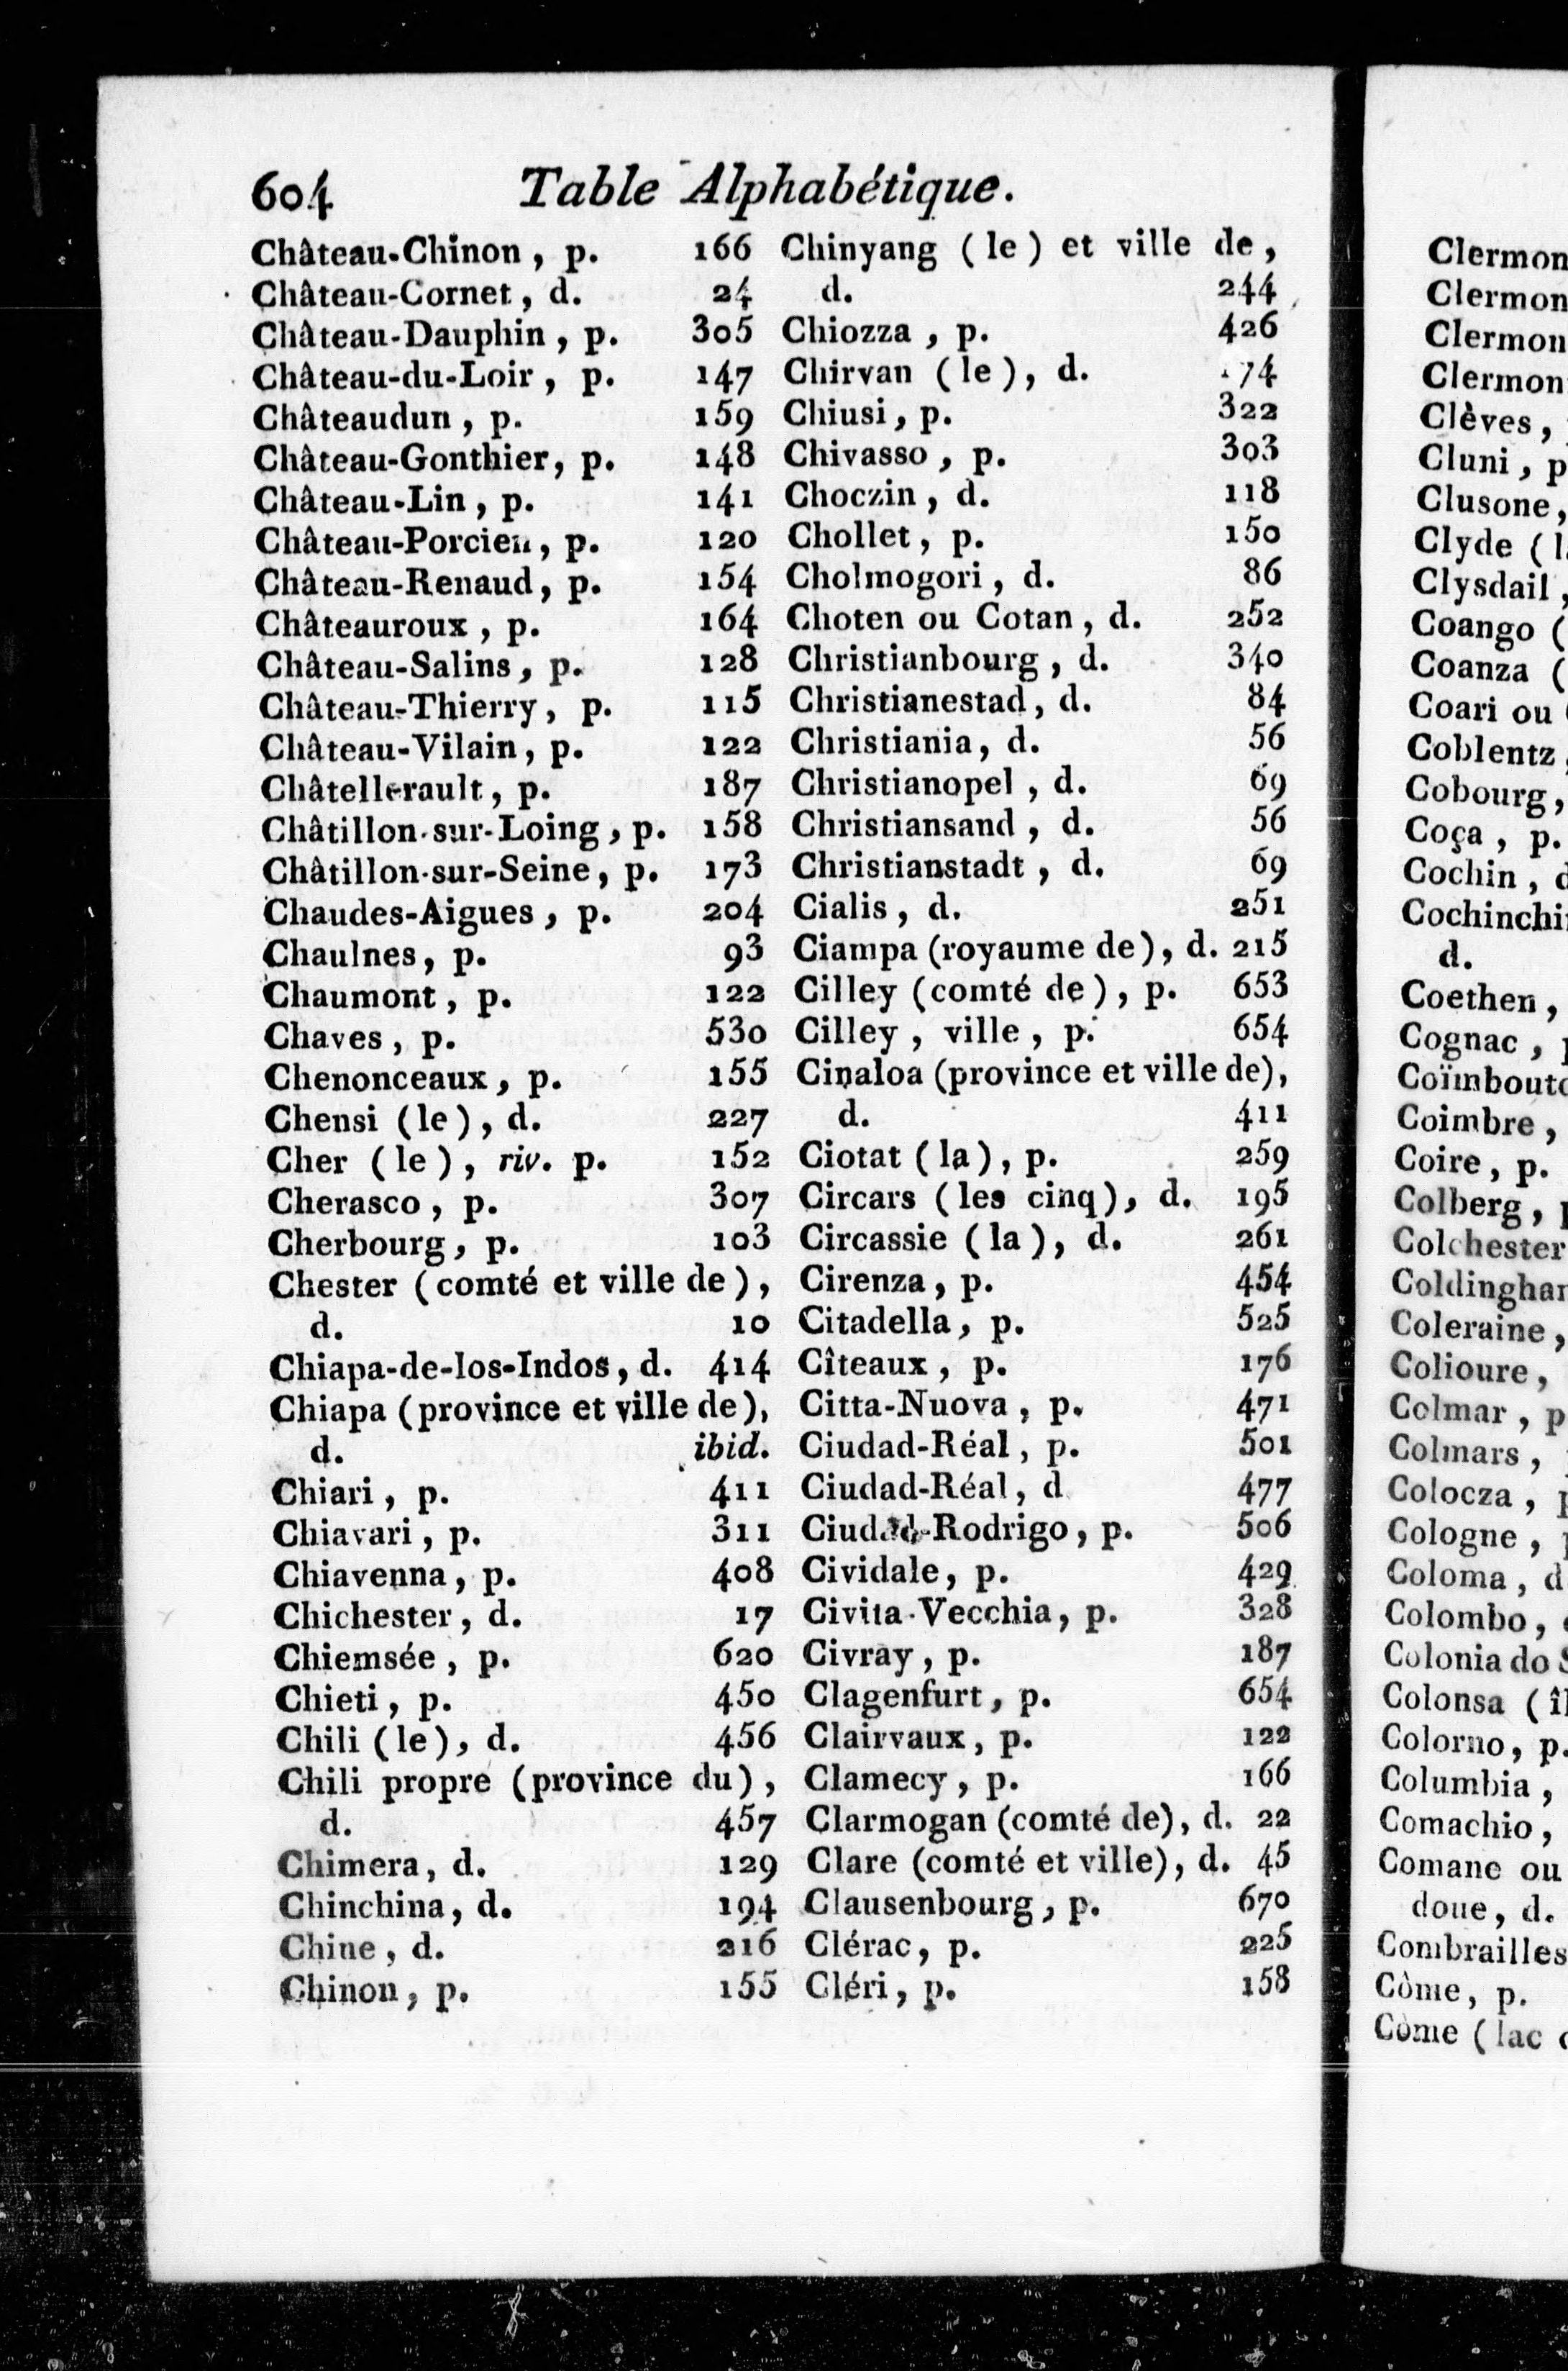 604 Table Alphabétique.
Château-Chinon, p. 166
Château-Cornet, d. 24
Château-Dauphin, p. 305
Château-du-Loir, p. 147
Châteaudun, p. 159
Château-Gonthier, p. 148
Château-Lin, p. 141
Château-Porcien, p. 120
Château-Renaud, p. 154
Châteauroux, p. 164
Château-Salins, p. 128
Château-Thierry, p. 115
Château-Vilain, p. 122
Châtellerault, p. 187
Châtillon-sur-Loing, p. 158
Châtillon-sur-Seine, p. 173
Chaudes-Aigues, p. 204
Chaulnes, p. 93
Chaumont, p. 122
Chaves, p. 530
Chenonceaux, p. 155
Chensi (le), d. 227
Cher (le), riv. p. 152
Cherasco, p. 307
Cherbourg, p. 103
Chester (comté et ville de),
d. 10
Chiapa-de-los-Indos, d. 414
Chiapa (province et ville de),
d. ibid.
Chiari, p. 411
Chiavari, p. 311
Chiavenna, p. 408
Chichester, d. 17
Chiemsée, p. 620
Chieti, p. 450
Chili (le), d. 456
Chili propre (province du),
d. 457
Chimera, d. 129
Chinchina, d. 194
Chine, d. 216
Chinon, p. 155
Chinyang (le) et ville de,
d. 244
Chiozza, p. 426
Chirvan (le), d. 74
Chiusi, p. 322
Chivasso, p. 303
Choczin, d. 118
Chollet, p. 150
Cholmogori, d. 86
Choten ou Cotan, d. 252
Christianbourg, d. 340
Christianestad, d. 84
Christiania, d. 56
Christianopel, d. 69
Christiansand, d. 56
Christianstadt, d. 69
Cialis, d. 251
Ciampa (royaume de), d. 215
Cilley (comté de), p. 653
Cilley, ville, p. 654
Cinaloa (province et ville de),
d. 411
Ciotat (la), p. 259
Circars (les cinq), d. 195
Circassie (la), d. 261
Cirenza, p. 454
Citadella, p. 525
Cîteaux, p. 176
Citta-Nuova, p. 471
Ciudad-Réal, p. 501
Ciudad-Réal, d 477
Ciudad-Rodrigo, p. 506
Cividale, p. 429
Civita-Vecchia, p. 328
Civray, p. 187
Clagenfurt, p. 654
Clairvaux, p. 122
Clamecy, p. 166
Clarmogan (comté de), d. 22
Clare (comté et ville), d. 45
Clausenbourg, p. 670
Clérac, p. 225
Cléri, p. 158
Clermon
Clermon
Clermon
Clermon
Clèves,
Cluni, p
Clusone,
Clyde (l
Clysdail,
Coango (
Coanza (
Coari ou
Coblentz
Cobourg,
Coça, p.
Cochin, d
Cochinchi
d.
Coethen,
Cognac,
Coïmbouto
Coimbre,
Coire, p.
Colberg,
Colchester
Coldinghar
Coleraine,
Colioure,
Colmar, p
Colmars,
Colocza,
Cologne,
Coloma, d
Colombo,
Colonia do S
Colonsa (îl
Colorno, p.
Columbia,
Comachio,
Comane ou
doue, d.
Combrailles
Còme, p.
Còme (lac d